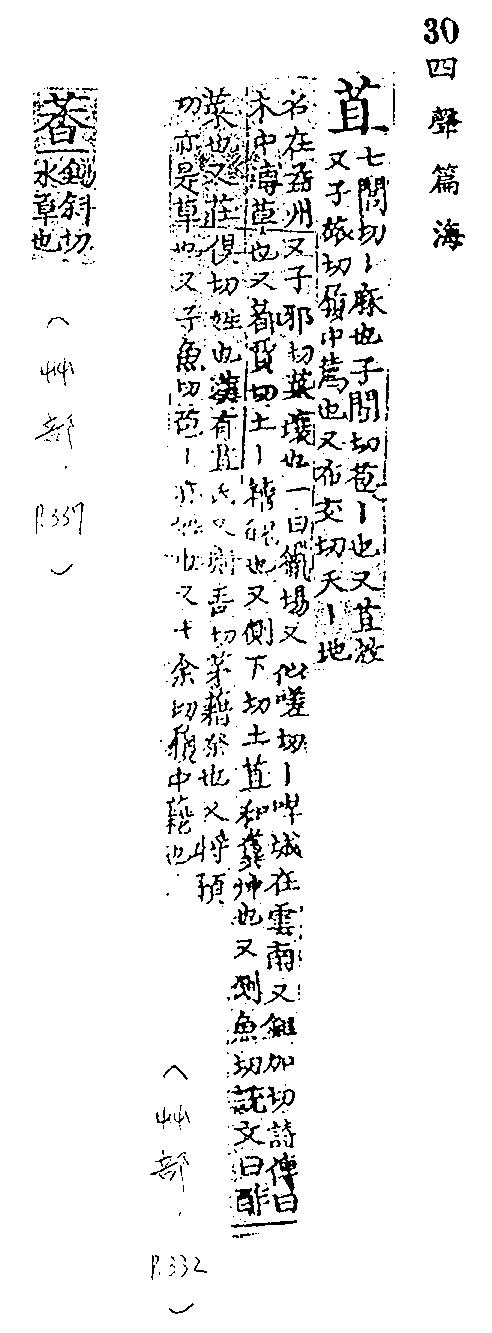 30
四聲篇海
苴
七閭切丨麻也子閭切苞丨也又苴
又子旅切履中薦也又布交切天丨地
名在益州又子耶切菜壞也一曰獵場又似嗟切丨咩城在雲南又鉏加切詩傳曰
木中浮草也又都賈切土丨也又側下切土苴和糞艸也又側魚切說文曰酢
菜也又莊俱切姓也漢有苴氏又則吾切茅藉祭也又將預
切亦是草也又子魚切苞丨也又七余切履中藉也
(艸部. P.332)
鉏斜切
水草也
(艸部. P.337)